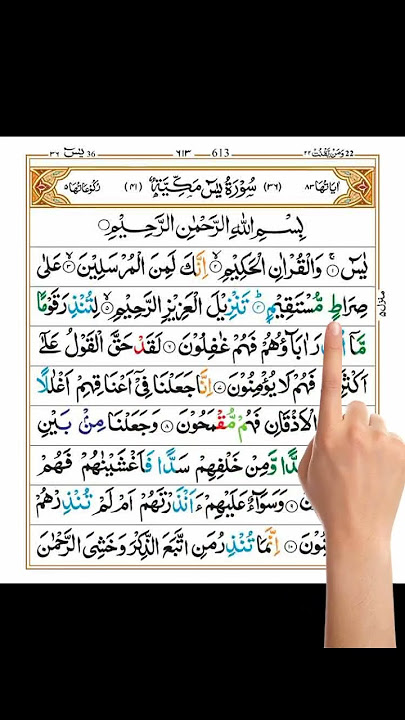 36 يٰسٓ ٣٦ ٦١٣ 613 وَمَنْ يَّقْنُتْ ٢٢ 22
اٰيَاتُهَا ٨٣ (٣٦) سُوْرَةُ يٰسٓ مَكِّيَّةٌ (٤١) رُكُوْعَاتُهَا ٥
بِسْمِ اللّٰهِ الرَّحْمٰنِ الرَّحِيْمِ
يٰسٓ ۝١ وَالْقُرْاٰنِ الْحَكِيْمِ ۝٢ اِنَّكَ لَمِنَ الْمُرْسَلِيْنَ ۝٣ عَلٰى
صِرَاطٍ مُّسْتَقِيْمٍ ۝٤ تَنْزِيْلَ الْعَزِيْزِ الرَّحِيْمِ ۝٥ لِتُنْذِرَ قَوْمًا
مَّآ اٰبَآؤُهُمْ فَهُمْ غٰفِلُوْنَ ۝٦ لَقَدْ حَقَّ الْقَوْلُ عَلٰٓى
فَهُمْ لَا يُؤْمِنُوْنَ ۝٧ اِنَّا جَعَلْنَا فِيْٓ اَعْنَاقِهِمْ اَغْلٰلًا
الْاَذْقَانِ فَهُمْ مُّقْمَحُوْنَ ۝٨ وَجَعَلْنَا مِنْۢ بَيْنِ
وَّمِنْ خَلْفِهِمْ سَدًّا فَاَغْشَيْنٰهُمْ فَهُمْ
وَسَوَآءٌ عَلَيْهِمْ ءَاَنْذَرْتَهُمْ اَمْ لَمْ تُنْذِرْهُمْ
۝١٠ اِنَّمَا تُنْذِرُ مَنِ اتَّبَعَ الذِّكْرَ وَخَشِيَ الرَّحْمٰنَ